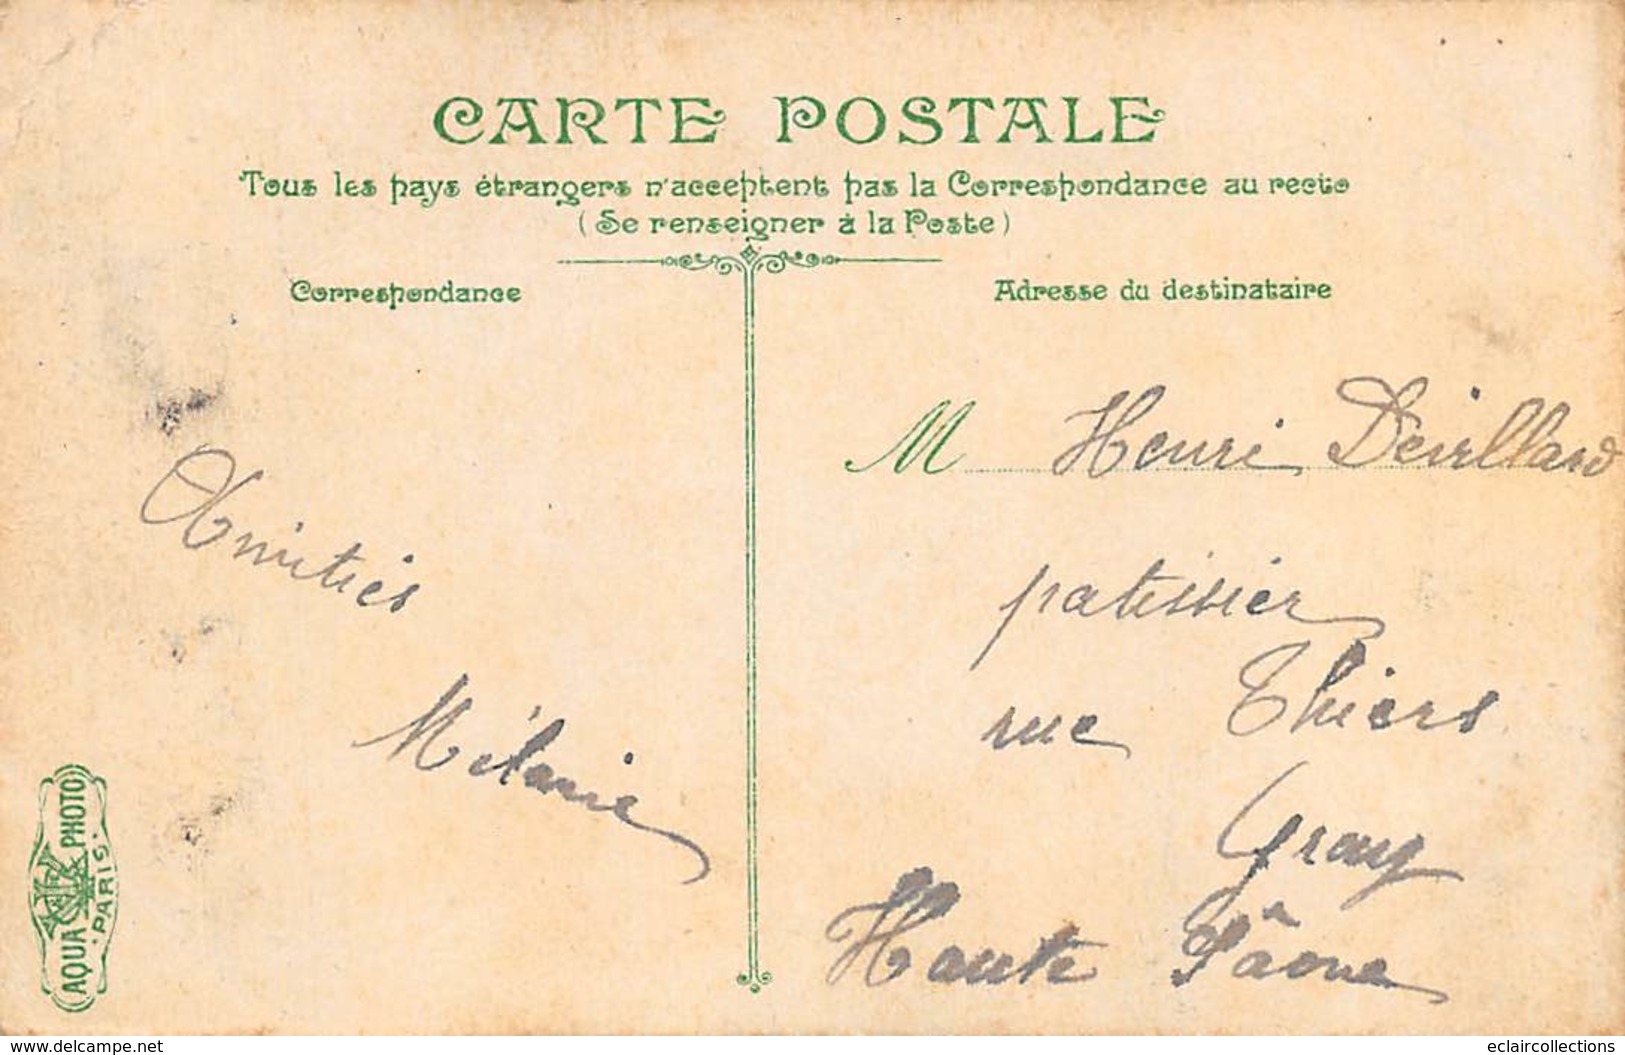 CARTE POSTALE
Tous les pays étrangers n'acceptent pas la Correspondance au recto
(Se renseigner à la Poste)
Correspondance
Adresse du destinataire
Amitiés
Mélanie
M Henri Devillard
patissier
rue Thiers
Gray
Haute Saône
AQUA PHOTO
PARIS
www.delcampe.net
eclaircollections